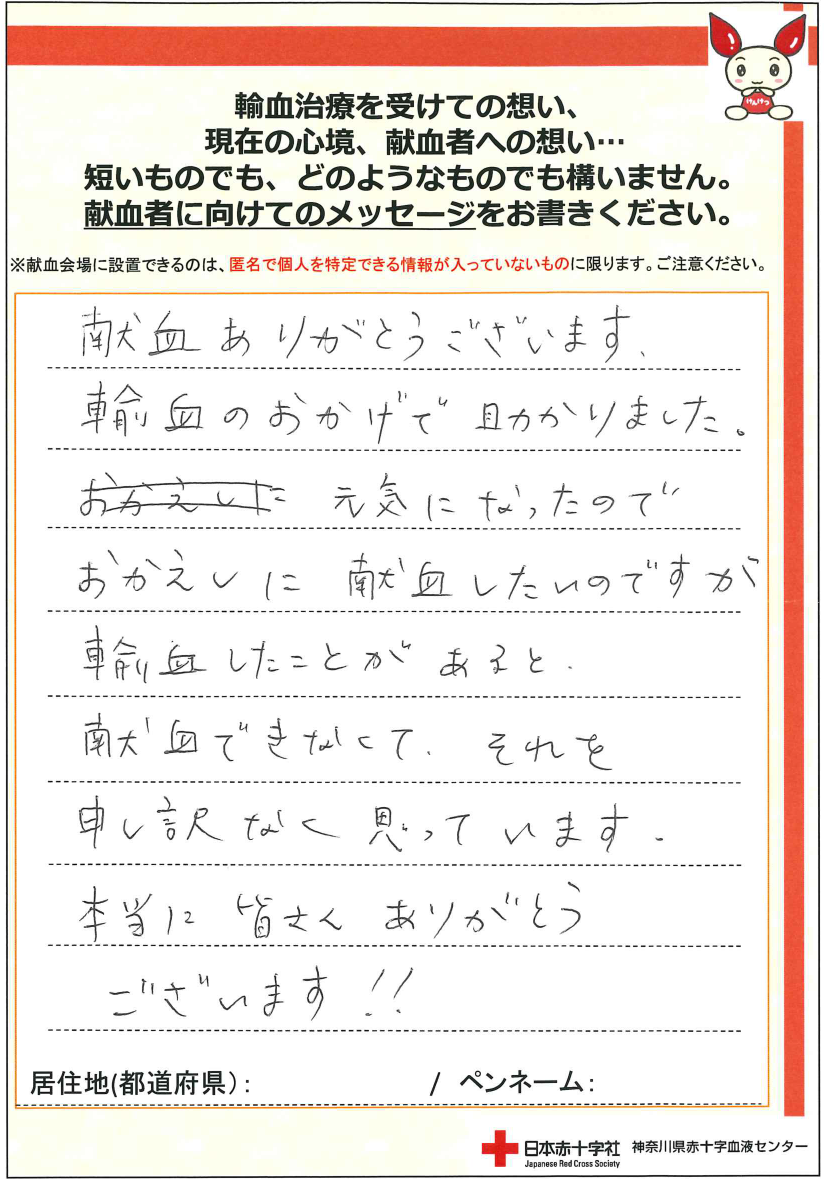 けんけつ
輸血治療を受けての想い、
現在の心境、献血者への想い…
短いものでも、どのようなものでも構いません。
献血者に向けてのメッセージをお書きください。
※献血会場に設置できるのは、匿名で個人を特定できる情報が入っていないものに限ります。ご注意ください。
献血ありがとうございます.
輸血のおかげで助かりました。
おかえしに 元気になったので
おかえしに 献血したいのですが
輸血したことがあると.
献血できなくて. それを
申し訳なく思っています.
本当に 皆さん ありがとう
ございます!!
居住地(都道府県): / ペンネーム:
日本赤十字社 神奈川県赤十字血液センター
Japanese Red Cross Society